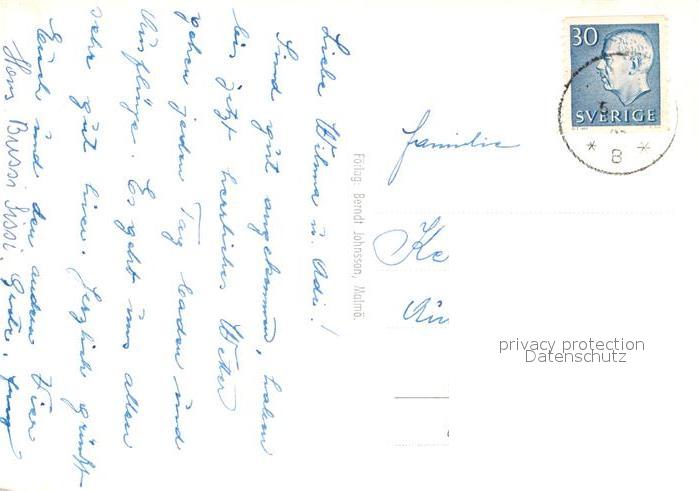 Liebe Wilma u. Adi!
Sind gut angekommen, haben
bis jetzt herrliches Wetter
gehen jeden Tag baden und
Ausflüge. Es geht uns allen
sehr gut hier. Herzlich grüßt
Euch und den andern Vier
Hans Bussi Sissi.
Förlag: Berndt Johnsson, Malmö.
Familie
Ke
30
SVERIGE
* 8 *
privacy protection
Datenschutz